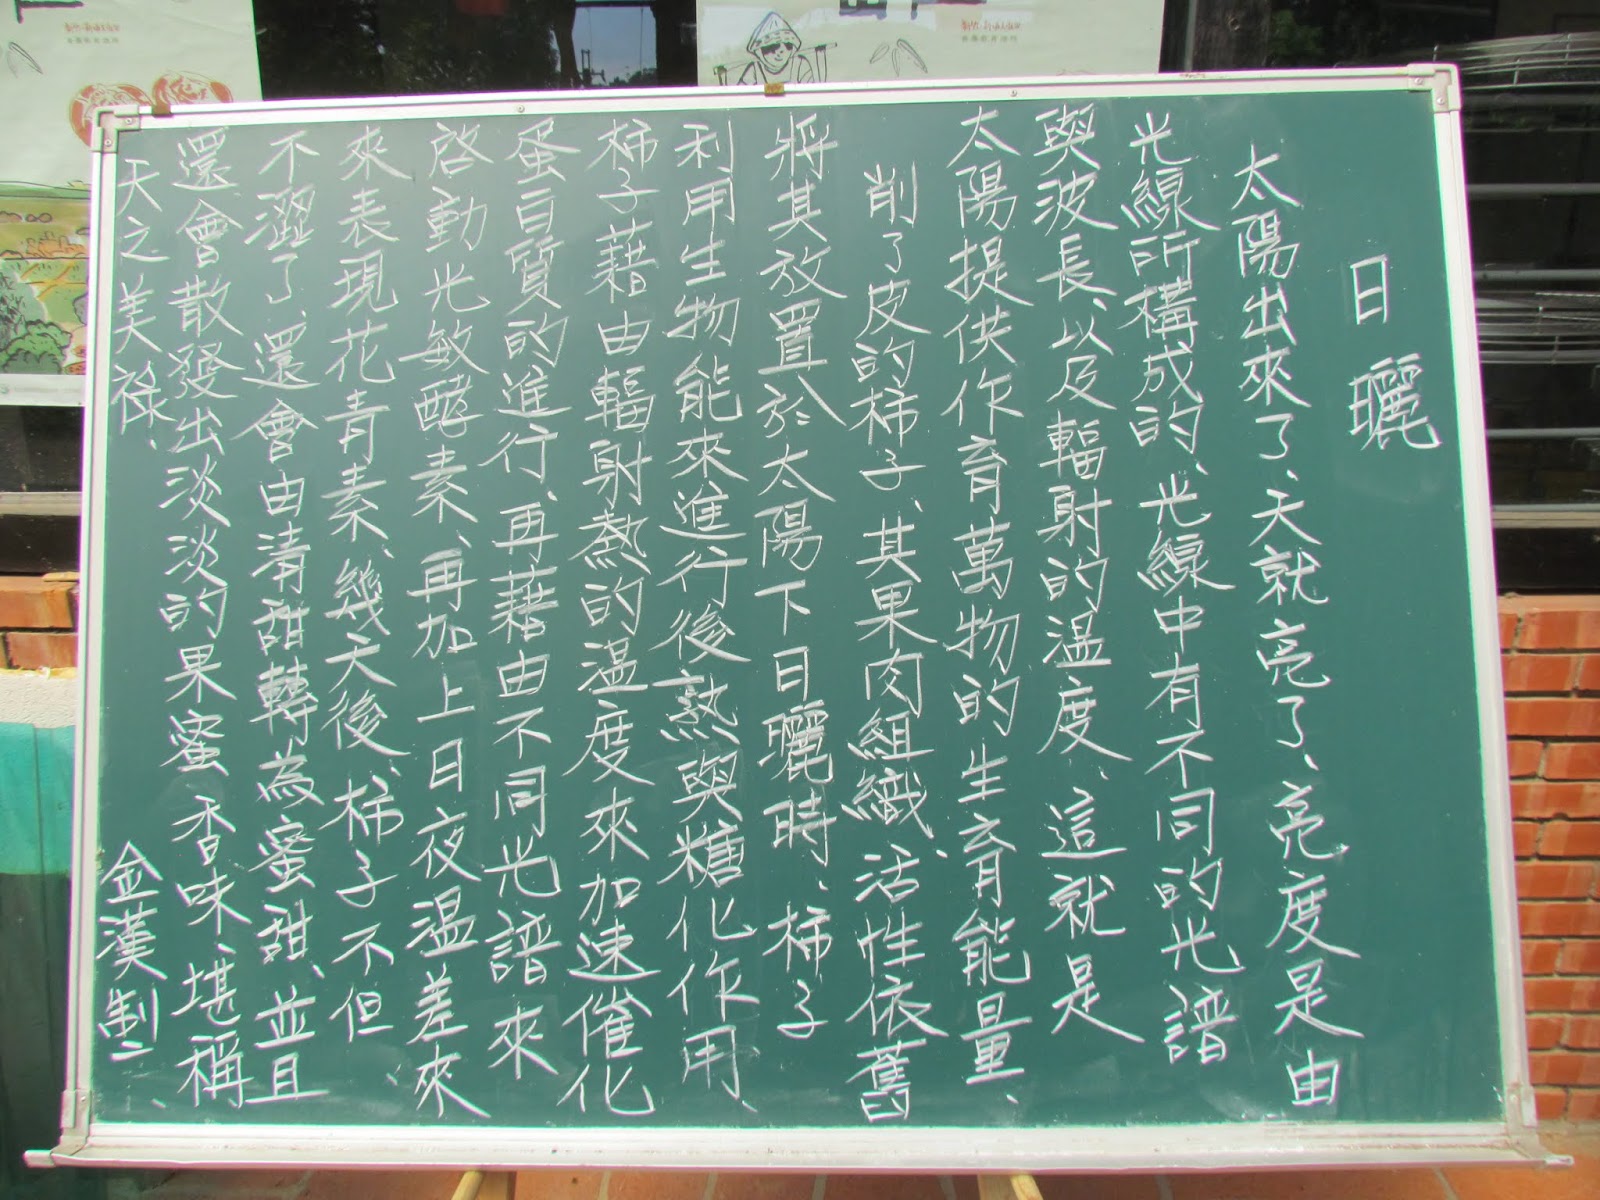 日曬
太陽出來了、天就亮了、亮度是由
光線所構成的、光線中有不同的光譜
與波長、以及輻射的溫度、這就是
太陽提供作育萬物的生育能量、
削了皮的柿子、其果肉組織、活性依舊
將其放置於太陽下日曬時、柿子
利用生物能來進行後熟與糖化作用、
柿子藉由輻射熱的溫度來加速催化
蛋白質的進行、再藉由不同光譜來
啓動光敏酵素、再加上日夜溫差來
來表現花青素、幾天後、柿子不但
不澀了、還會由清甜轉為蜜甜、並且
還會散發出淡淡的果蜜香味、堪稱
天之美祿、
金漢制二、